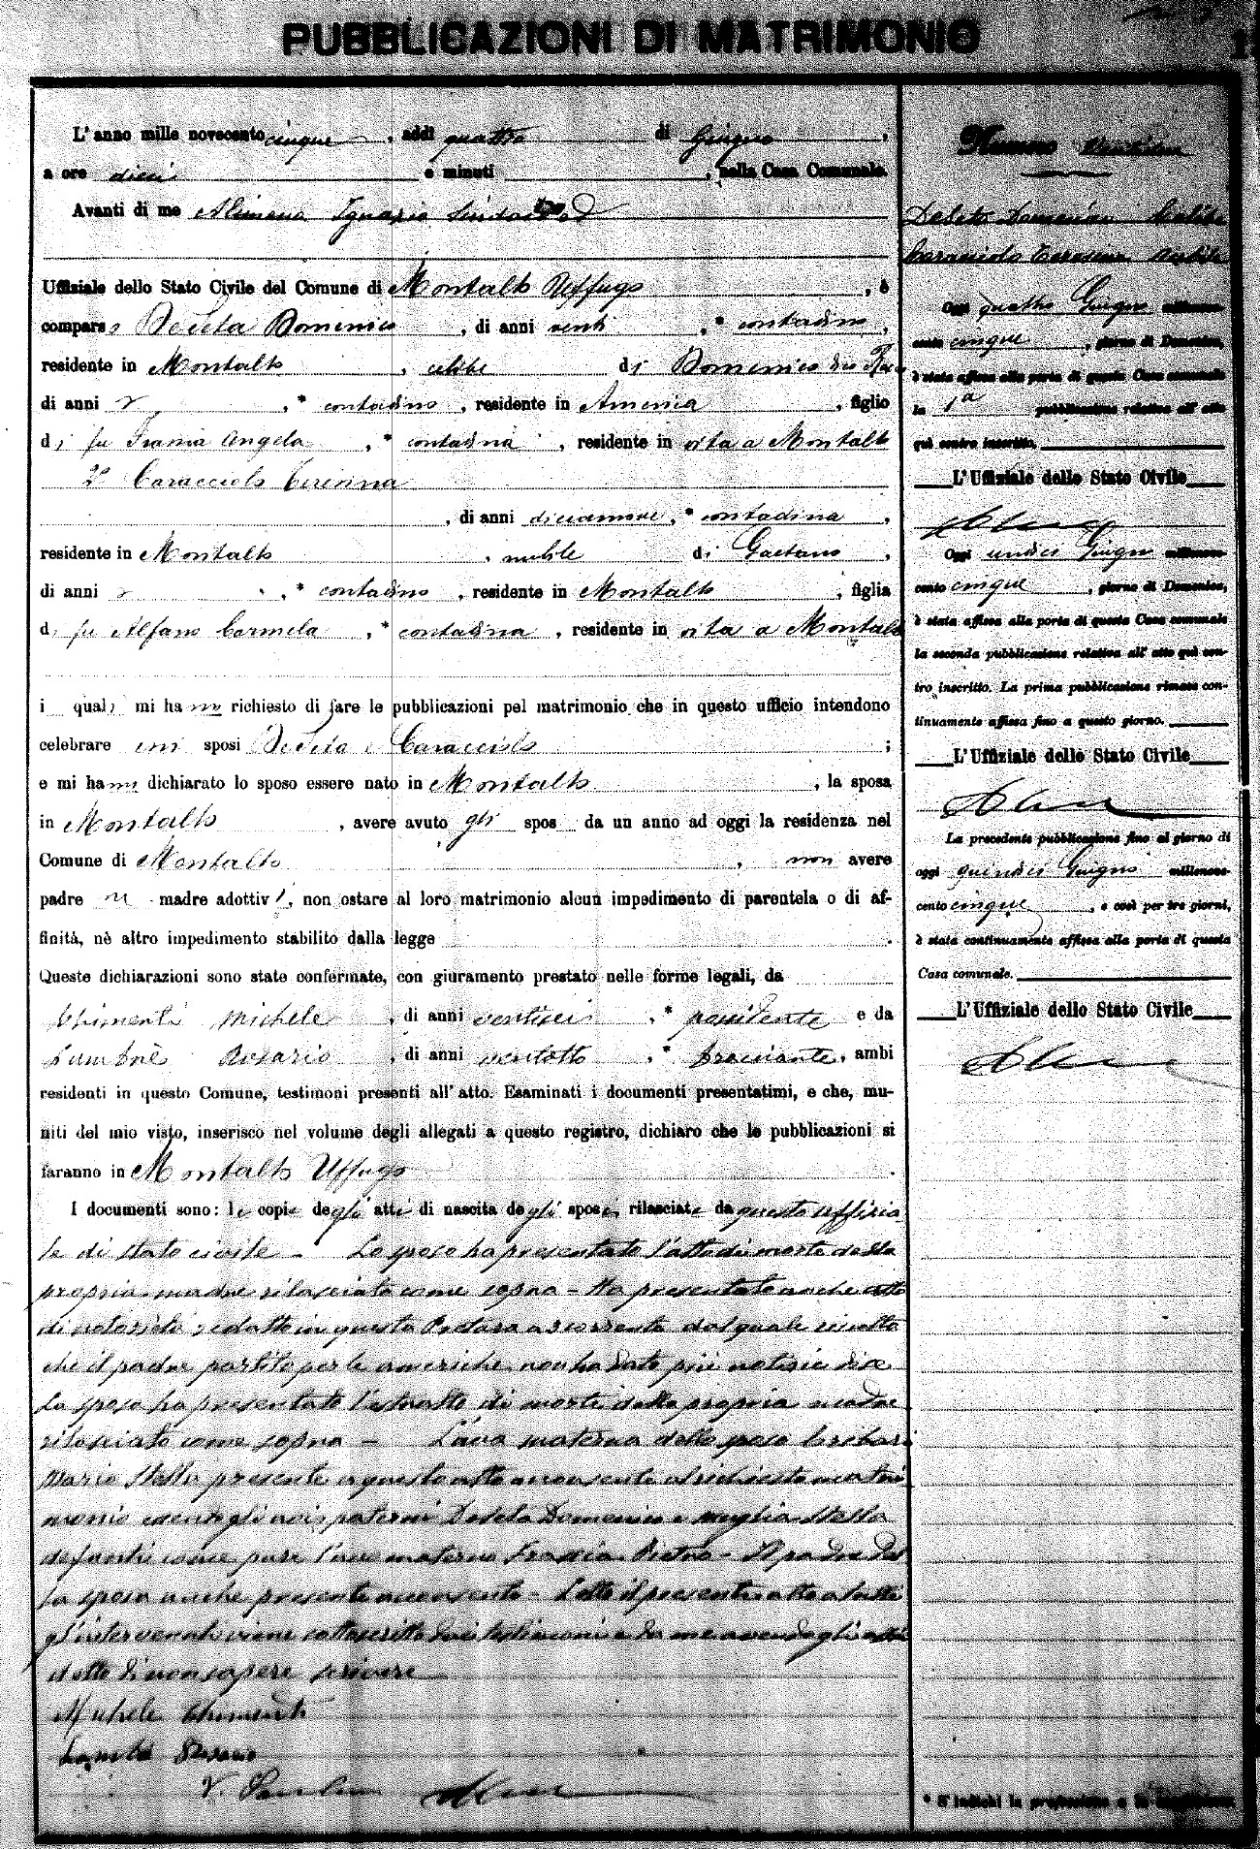 PUBBLICAZIONI DI MATRIMONIO
L'anno mille novecento cinque, addì quattro di Giugno,
a ore dieci e minuti , nella Casa Comunale.
Avanti di me Alimena Ignazio Sindaco
Uffiziale dello Stato Civile del Comune di Montalto Uffugo, è
compars Deseta Domenico, di anni venti, * contadino,
residente in Montalto, celibe di Domenico
di anni , * contadino, residente in America, figlio
di fu Frassia Angela, * contadina, residente in vita a Montalto
2º Caracciolo Teresina
, di anni diciannove, * contadina,
residente in Montalto, nubile di Gaetano,
di anni , * contadino, residente in Montalto, figlia
di fu Alfano Carmela, * contadina, residente in vita a Montalto
i quali mi hanno richiesto di fare le pubblicazioni pel matrimonio che in questo ufficio intendono
celebrare essi sposi Deseta e Caracciolo ;
e mi hanno dichiarato lo sposo essere nato in Montalto, la sposa
in Montalto, avere avuto gli spos da un anno ad oggi la residenza nel
Comune di Montalto, non avere
padre ni madre adottivi, non ostare al loro matrimonio alcun impedimento di parentela o di af-
finità, nè altro impedimento stabilito dalla legge .
Queste dichiarazioni sono state confermate, con giuramento prestato nelle forme legali, da
Chimenti Michele, di anni ventisei, * possidente e da
Rosario, di anni ventotto, * bracciante, ambi
residenti in questo Comune, testimoni presenti all'atto. Esaminati i documenti presentatimi, e che, mu-
niti del mio visto, inserisco nel volume degli allegati a questo registro, dichiaro che le pubblicazioni si
faranno in Montalto Uffugo .
I documenti sono: le copie degli atti di nascita degli sposi, rilasciate da questo uffizia
le di stato civile - Lo sposo ha presentato l'atto di morte della
propria madre rilasciato come sopra - Ha presentato anche atto
di notorietà redatto in questa Pretura dal quale risulta
che il padre partito per le americhe non ha dato più notizie di se
La sposa ha presentato l'estratto di morte della propria madre
rilasciato come sopra - L'ava materna dello sposo
Maria Stella presente a questo atto acconsente al richiesto matri
monio essendo gli avi paterni Deseta Domenico e Stella
defunti come pure l'avo materno Frassia Pietro - Il padre del
la sposa anche presente acconsente - Letto il presente atto a tutti
gl'intervenuti viene sottoscritto dai testimoni e da me avendo gli altri
detto di non sapere scrivere
Michele Chimenti
Rosario
Numero
Deseta Domenico Celibe
Caracciolo Teresina Nubile
Oggi quattro Giugno millenove-
cento cinque, giorno di Domenica,
è stata affissa alla porta di questa Casa comunale
la 1ª pubblicazione relativa all'atto
quì contro inscritto.
L'Uffiziale dello Stato Civile
Oggi undici Giugno millenove-
cento cinque, giorno di Domenica,
è stata affissa alla porta di questa Casa comunale
la seconda pubblicazione relativa all'atto quì con-
tro inscritto. La prima pubblicazione rimase con-
tinuamente affissa fino a questo giorno.
L'Uffiziale dello Stato Civile
La precedente pubblicazione fino al giorno di
oggi quindici Giugno millenove-
cento cinque, e così per tre giorni,
è stata continuamente affissa alla porta di questa
Casa comunale.
L'Uffiziale dello Stato Civile
* S'indichi la professione o la condizione.